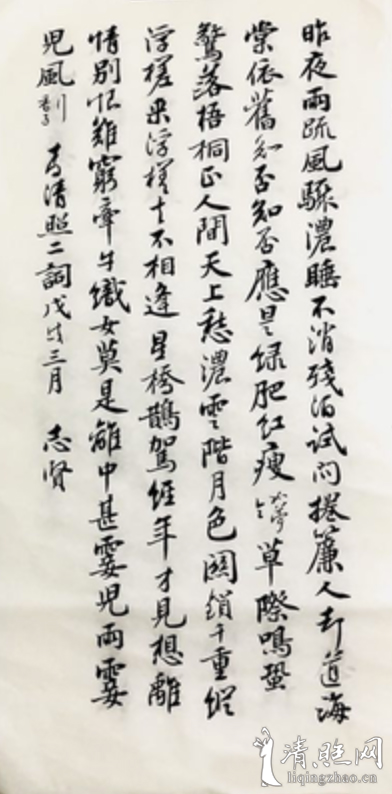 昨夜雨疏风骤浓睡不消残酒试问捲簾人却道海
棠依舊知否知否應是绿肥红瘦 如梦令 草際鳴蛩
驚落梧桐正人間天上愁濃雲階月色関鎖千重縱
浮槎来浮槎去不相逢星橋鵲駕經年才見想離
情别恨難窮牽牛織女莫是離中甚霎児雨霎
児風 行香子 李清照二詞戊戌三月 志贤
清照网
liqingzhao.cn